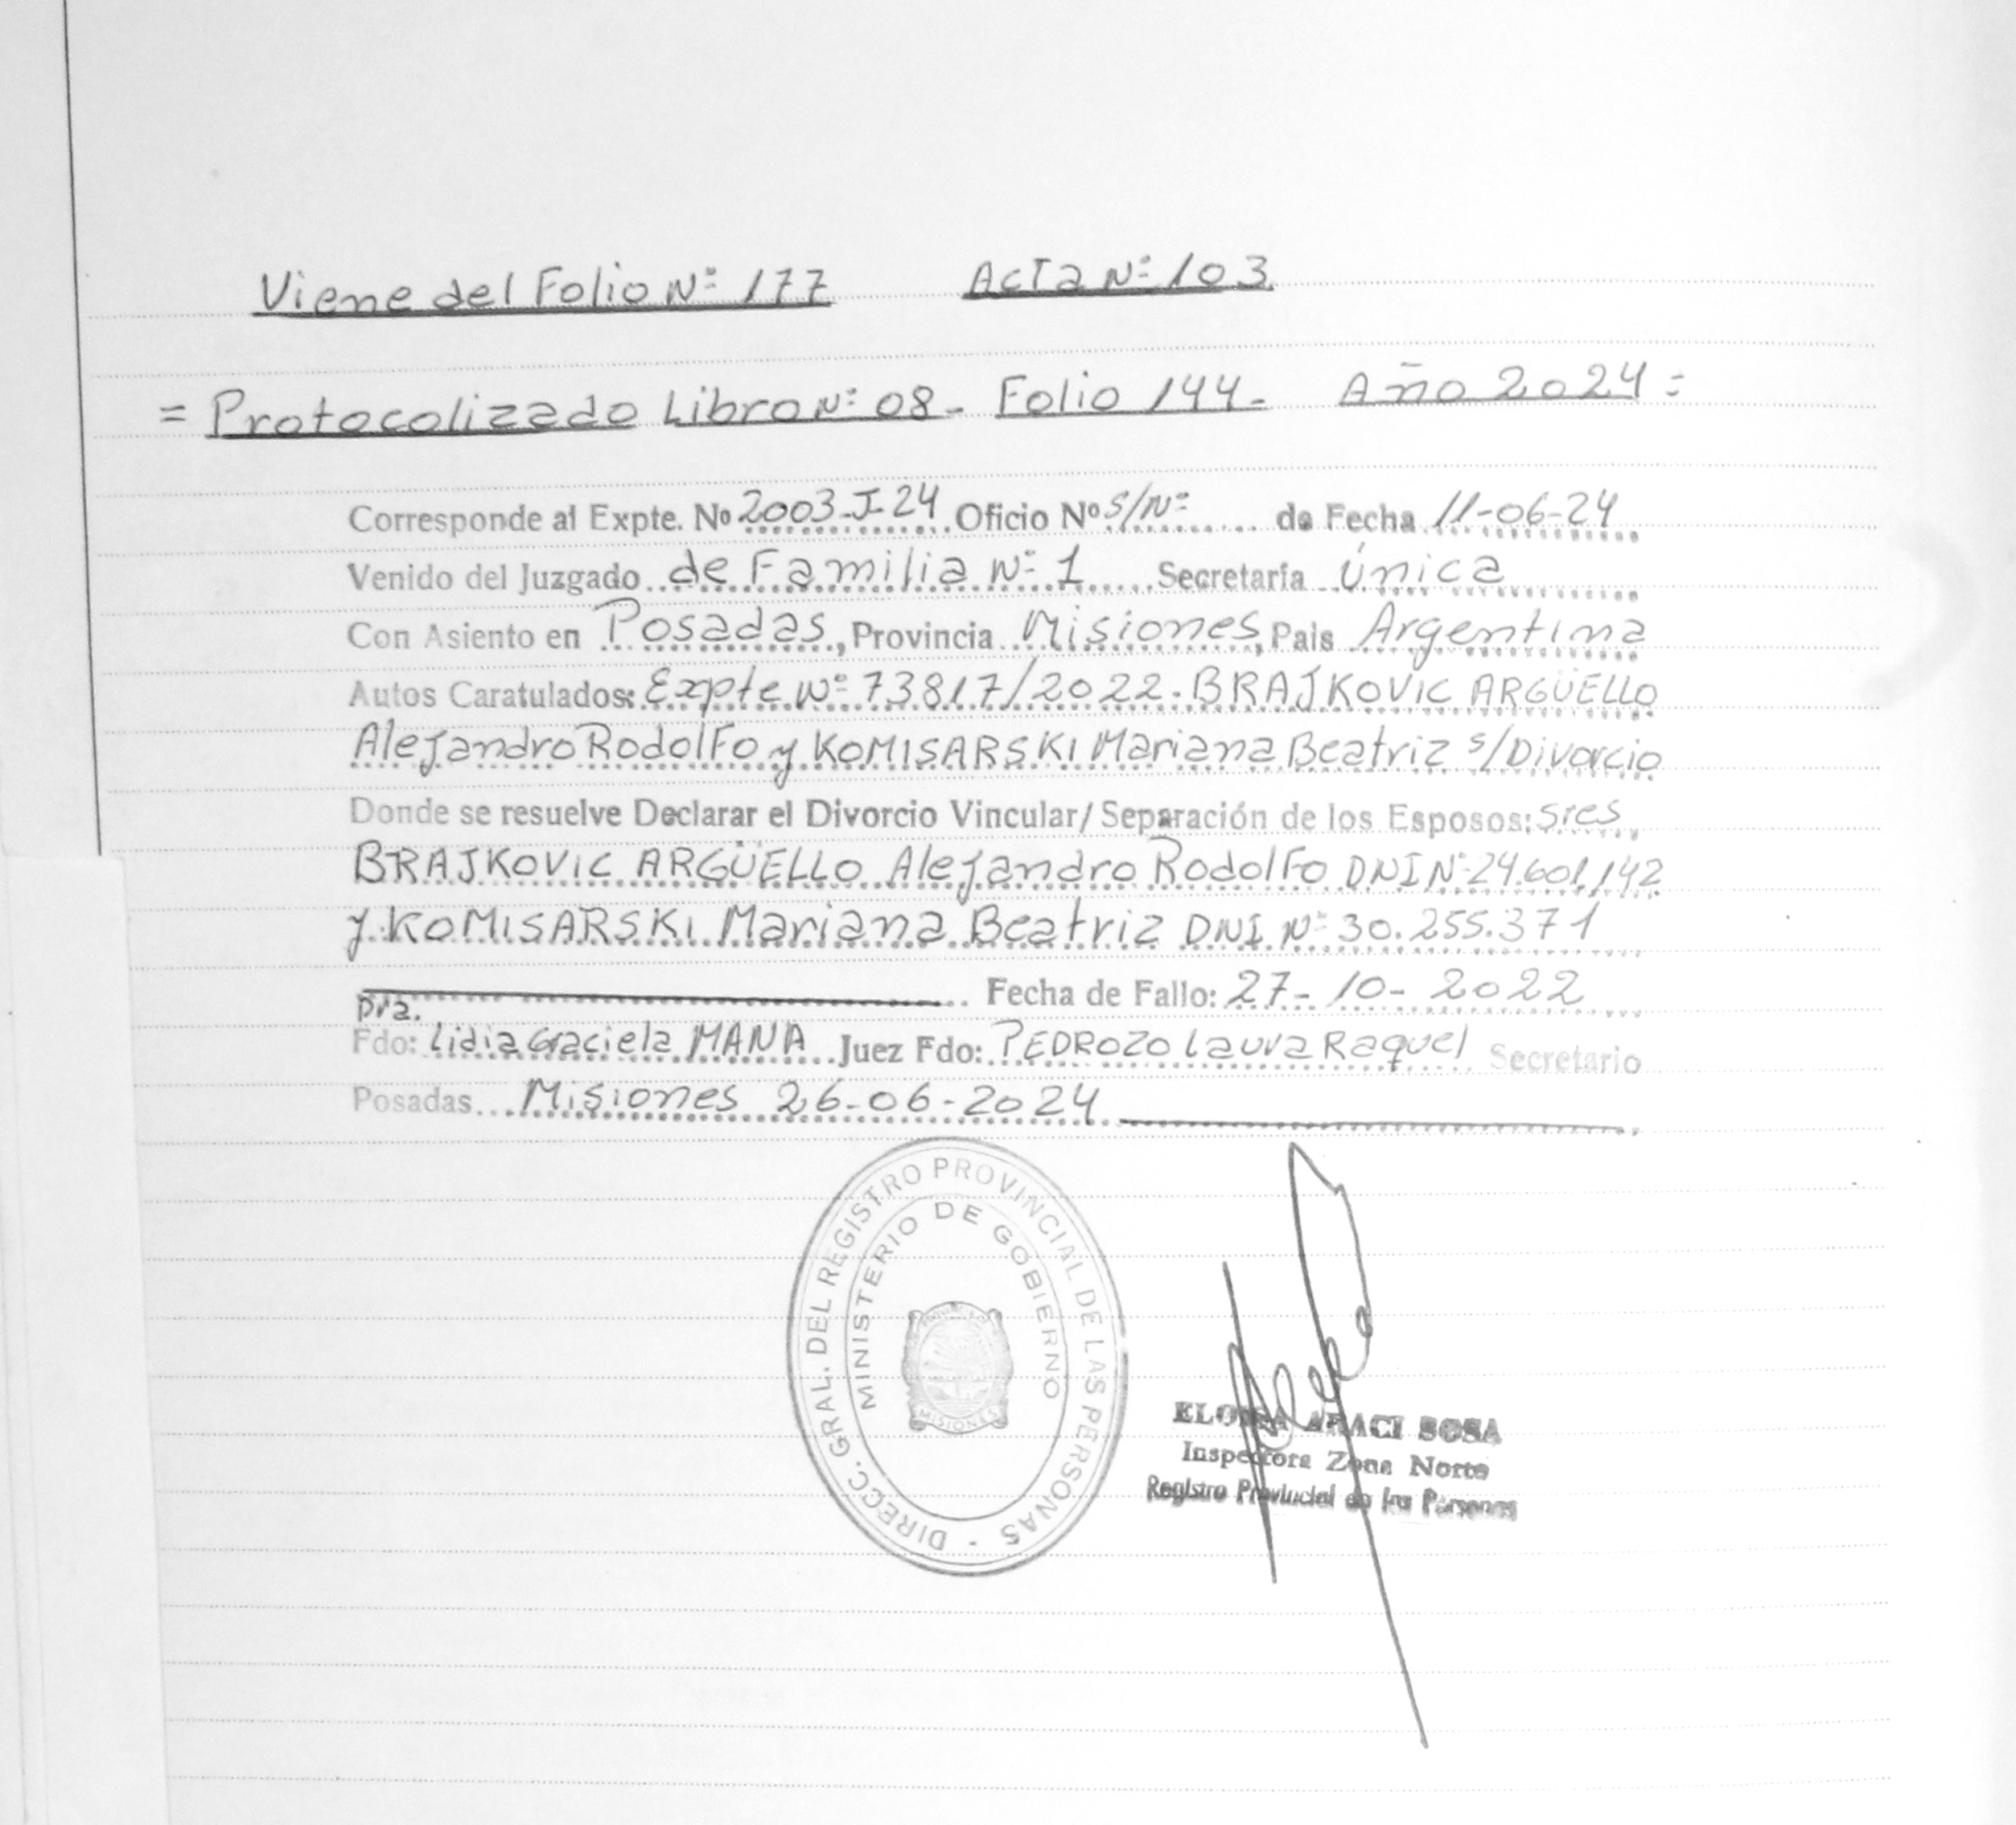 Viene del Folio Nº 177 Acta Nº 103
= Protocolizado Libro Nº 08 - Folio 144 - Año 2024 =
Corresponde al Expte. Nº 2003-J-24 Oficio Nº S/Nº de Fecha 11-06-24
Venido del Juzgado de Familia Nº 1 Secretaría Única
Con Asiento en Posadas, Provincia Misiones, Pais Argentina
Autos Caratulados: Expte Nº 73817/2022. BRAJKOVIC ARGÜELLO
Alejandro Rodolfo y KOMISARSKI Mariana Beatriz s/Divorcio
Donde se resuelve Declarar el Divorcio Vincular/ Separación de los Esposos: sres
BRAJKOVIC ARGÜELLO Alejandro Rodolfo DNI Nº 24.601.142
y KOMISARSKI Mariana Beatriz DNI Nº 30.255.371
Fecha de Fallo: 27-10-2022
Dra.
Fdo: Lidia Graciela MANA Juez Fdo: PEDROZO Laura Raquel Secretario
Posadas Misiones 26-06-2024
DIRECC. GRAL. DEL REGISTRO PROVINCIAL DE LAS PERSONAS -
MINISTERIO DE GOBIERNO
MISIONES
ELOISA ARACI SOSA
Inspectora Zona Norte
Registro Provincial de las Personas